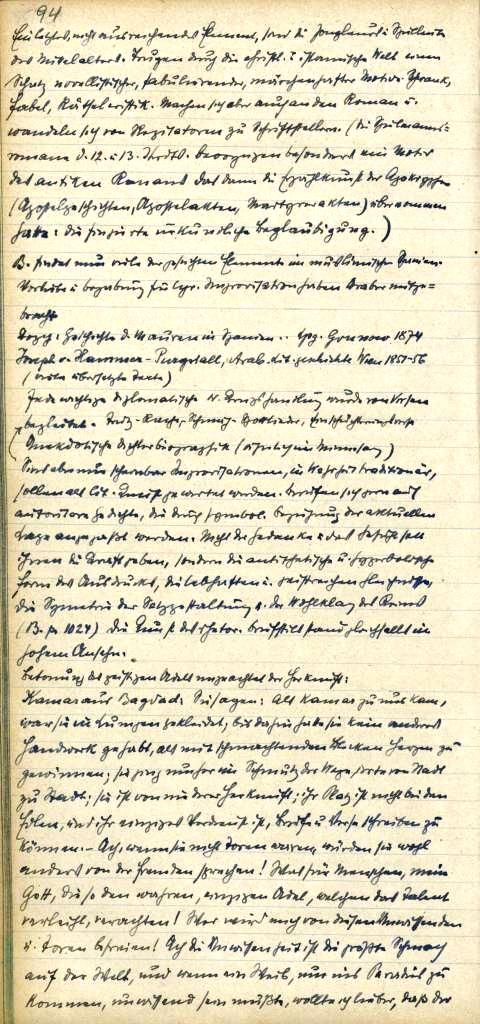 94
Ein letztes, nicht ausreichendes Element, sind die Jongleurs u. Spielleute
des Mittelalters. Trugen durch die christl. u. islamische Welt einen
Schatz novellistischer, fabulierender, märchenhafter Motive: Schwank,
Fabel, Rätselveristik. Machen sich aber auch an den Roman u.
wandeln sich von Rezitatoren zu Schriftstellern. (Die Spielmanns=
romane d. 12. u. 13. Jhrdts. bevorzugen besonders ein Motiv
des antiken Romans das dann die Erzählkunst der Apokryphen
(Apostelgeschichten, Apostelakten, Martyrerakten) übernommen
hatte: die fingierte urkundliche Beglaubigung.)
B. findet nun viele der gesuchten Elemente im muslimischen Spanien.
Vorliebe u. Begabung für lyr. Improvisation haben Araber mitge=
bracht
Dozy: Geschichte d. Mauren in Spanien.. Lpz. Grunow 1874
Joseph v. Hammer-Purgstall, Arab. Lit. geschichte Wien 1850-56
(viele übersetzte Texte)
Jede wichtige diplomatische u. Kriegshandlung wurde von Versen
begleitet. Trutz- Rache- Schmäh- Spottlieder,
Anekdotische Dichterbiographik
Sind aber nur scheinbar Improvisationen, in Wahrheit traditionär,
sollen als lit. Kunst gewertet werden. Berufen sich gern auf
autoritäre Gedichte, die durch symbol. Beziehung der aktuellen
Lage angepaßt werden. Nicht der Gedanke u. das Gefühl soll
ihnen die Kraft geben, sondern die antithetische u. hyperbolische
Form des Ausdrucks, die lebhaften u. geistreichen Gleichnisse,
die Symmetrie der Satzgestaltung u. der Wohlklang des Reims
(B. p. 1024) Die Kunst des rhetor. Briefstils stand gleichfalls in
hohem Ansehn.
Betonung des geistigen Adels ungeachtet der Herkunft:
Kamar aus Bagdad: Sie sagen: Als Kamar zu uns kam,
war sie in Lumpen gekleidet; bis dahin habe sie kein anderes
Handwerk gehabt, als mit schmachtenden Blicken Herzen zu
gewinnen; sie ging umher im Schmutz der Wege, irrte von Stadt
zu Stadt; sie ist von niederer Herkunft; ihr Platz ist nicht bei den
Edlen, und ihr einziges Verdienst ist, Briefe u. Verse schreiben zu
können. - Ach, wenn sie nicht Toren wären, würden sie wohl
anders von der Fremden sprechen! Was für Menschen, mein
Gott, die so den wahren, einzigen Adel, welchen das Talent
verleiht, verachten! Wer wird mich von diesen Unwissenden
u. Toren befreien! Ach die Unwissenheit ist die größte Schmach
auf der Welt, und wenn ein Weib, um ins Paradies zu
kommen, unwissend sein müßte, wollte ich lieber, daß der